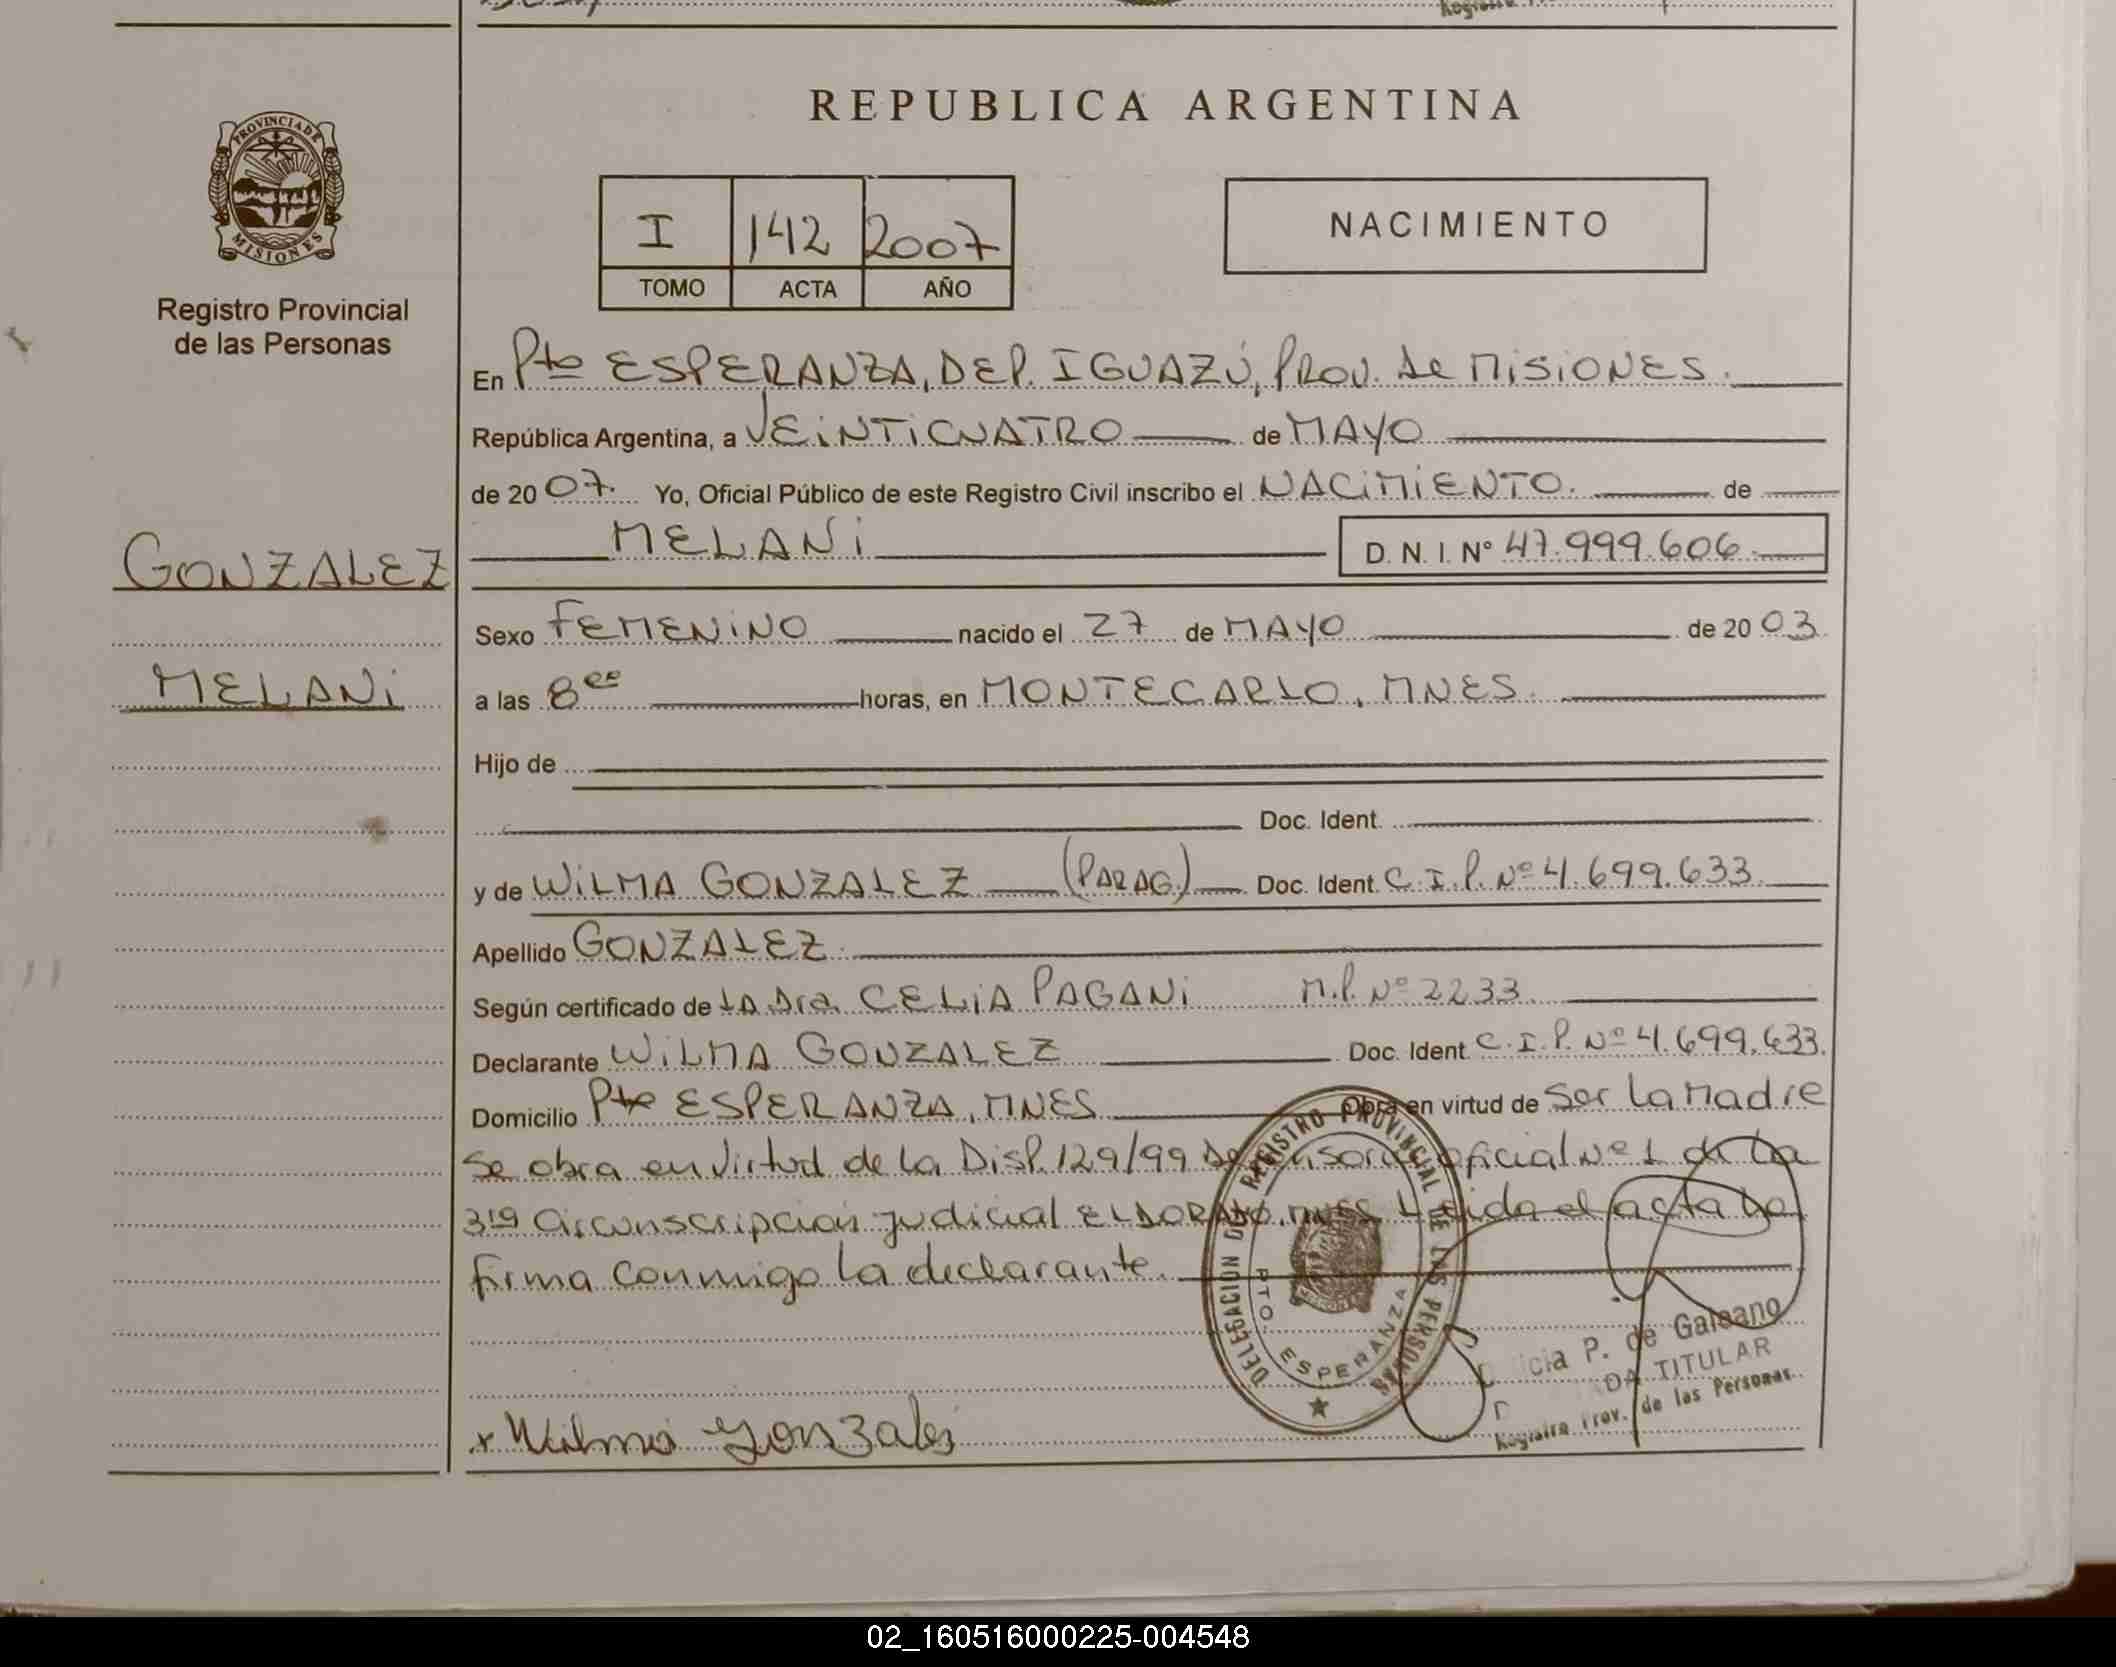 REPUBLICA ARGENTINA
PROVINCIA DE
MISIONES
Registro Provincial
de las Personas
I 142 2007
TOMO ACTA AÑO
NACIMIENTO
En Pto ESPERANZA, DEP. IGUAZÚ, PROV. de MISIONES.
República Argentina, a VEINTICUATRO de MAYO
de 2007. Yo, Oficial Público de este Registro Civil inscribo el NACIMIENTO. de
GONZALEZ
MELANI
MELANI D. N. I. N° 47.999.606
Sexo FEMENINO nacido el 27 de MAYO de 2003
a las 8 horas, en MONTECARLO, MNES.
Hijo de
Doc. Ident.
y de WILMA GONZALEZ (PARAG.) Doc. Ident. C.I.P. Nº 4.699.633
Apellido GONZALEZ
Según certificado de LA Dra. CELIA PAGANI M.P. Nº 2233
Declarante WILMA GONZALEZ Doc. Ident. C.I.P. Nº 4.699.633.
Domicilio Pto ESPERANZA, MNES Obra en virtud de Ser La Madre
Se obra en virtud de la Disp. 129/99 oficial Nº 1 de La
3ra Circunscripcion Judicial ELDORADO, MNES Leida el acta La
firma conmigo la declarante.
DELEGACION DE REGISTRO PROVINCIAL DE LAS PERSONAS
PTO. ESPERANZA
P. de Galeano
TITULAR
Registro Prov. de las Personas
x Wilma Gonzalez
02_160516000225-004548